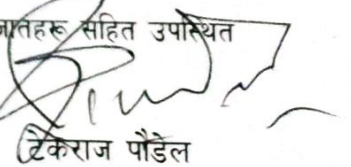 सहित उपस्थित
टेकराज पौडेल